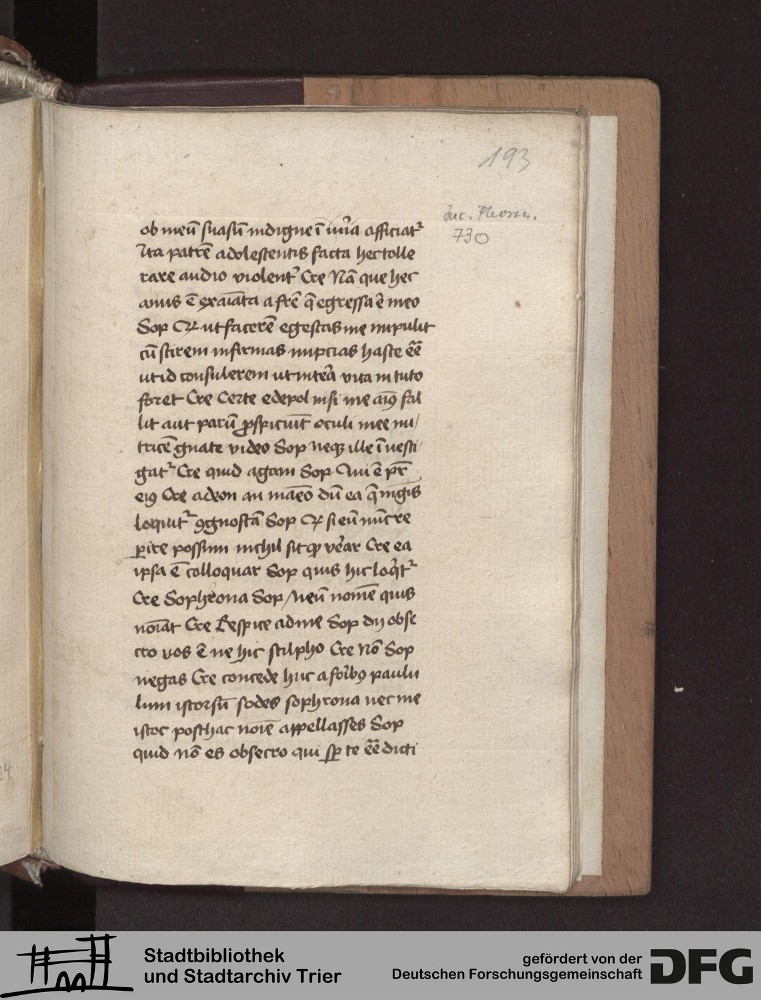 193
Inc. Phorm.
730
ob meū suasū indigne ī iur̄ia afficiat᷑
Ita patrē adolestentis facta hec tolle
rare audio violent᷑ Cre Nā que hec
anus ē exaīata a frē q̄ egressa ē meo
Sop Qꝛ ut facerē egestas me impulit
cū scirem infirmas nupcias hasce ēē
ut id consulerem ut intēa vita in tuto
foret Cre Certe edepol nisi me aīꝰ fal
lit aut parū ꝓspiciūt oculi mee nu/
tricē gnate video Sop neqꝫ ille īuesti
gat᷑ Cre quid agam Sop Qui ē pr̄
eiꝰ Cre adeon an maēo dū ea q̄ mgis
loquit᷑ ꝯgnoscā Sop Qꝛ si eū nūc re
ꝑire possim nichil sit qꝫ verar Cre ea
ipsa ē colloquar Sop quis hic loq̄t᷑
Cre Sophrona Sop Meū nomē quis
noīat Cre Respice ad me Sop dij obse
cro vos ē ne hic stilpho Cre Nō Sop
negas Cre concede huc a foribꝰ paulu
lum istorsū sodes sophrona nec me
istoc posthac noīe appellasses Sop
quid nō es obsecro qui sꝑ te ēē dicti
Stadtbibliothek
und Stadtarchiv Trier
gefördert von der
Deutschen Forschungsgemeinschaft
DFG